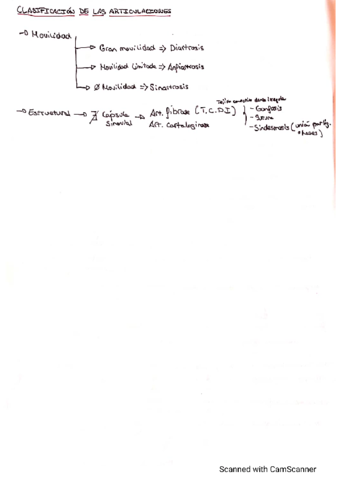 CLASIFICACIÓN DE LAS ARTICULACIONES
→ Movilidad
→ Gran movilidad => Diartrosis
→ Movilidad limitada => Anfiartrosis
→ Ø Movilidad => Sinartrosis
Tejido conectivo denso irregular
→ Estructural → ∄ Cápsula sinovial → Art. fibrosa (T.C.D.I)
- Gonfosis
- Sutura
- Sindesmosis (unión por lig. + huesos)
Art. Cartilaginosa
Scanned with CamScanner